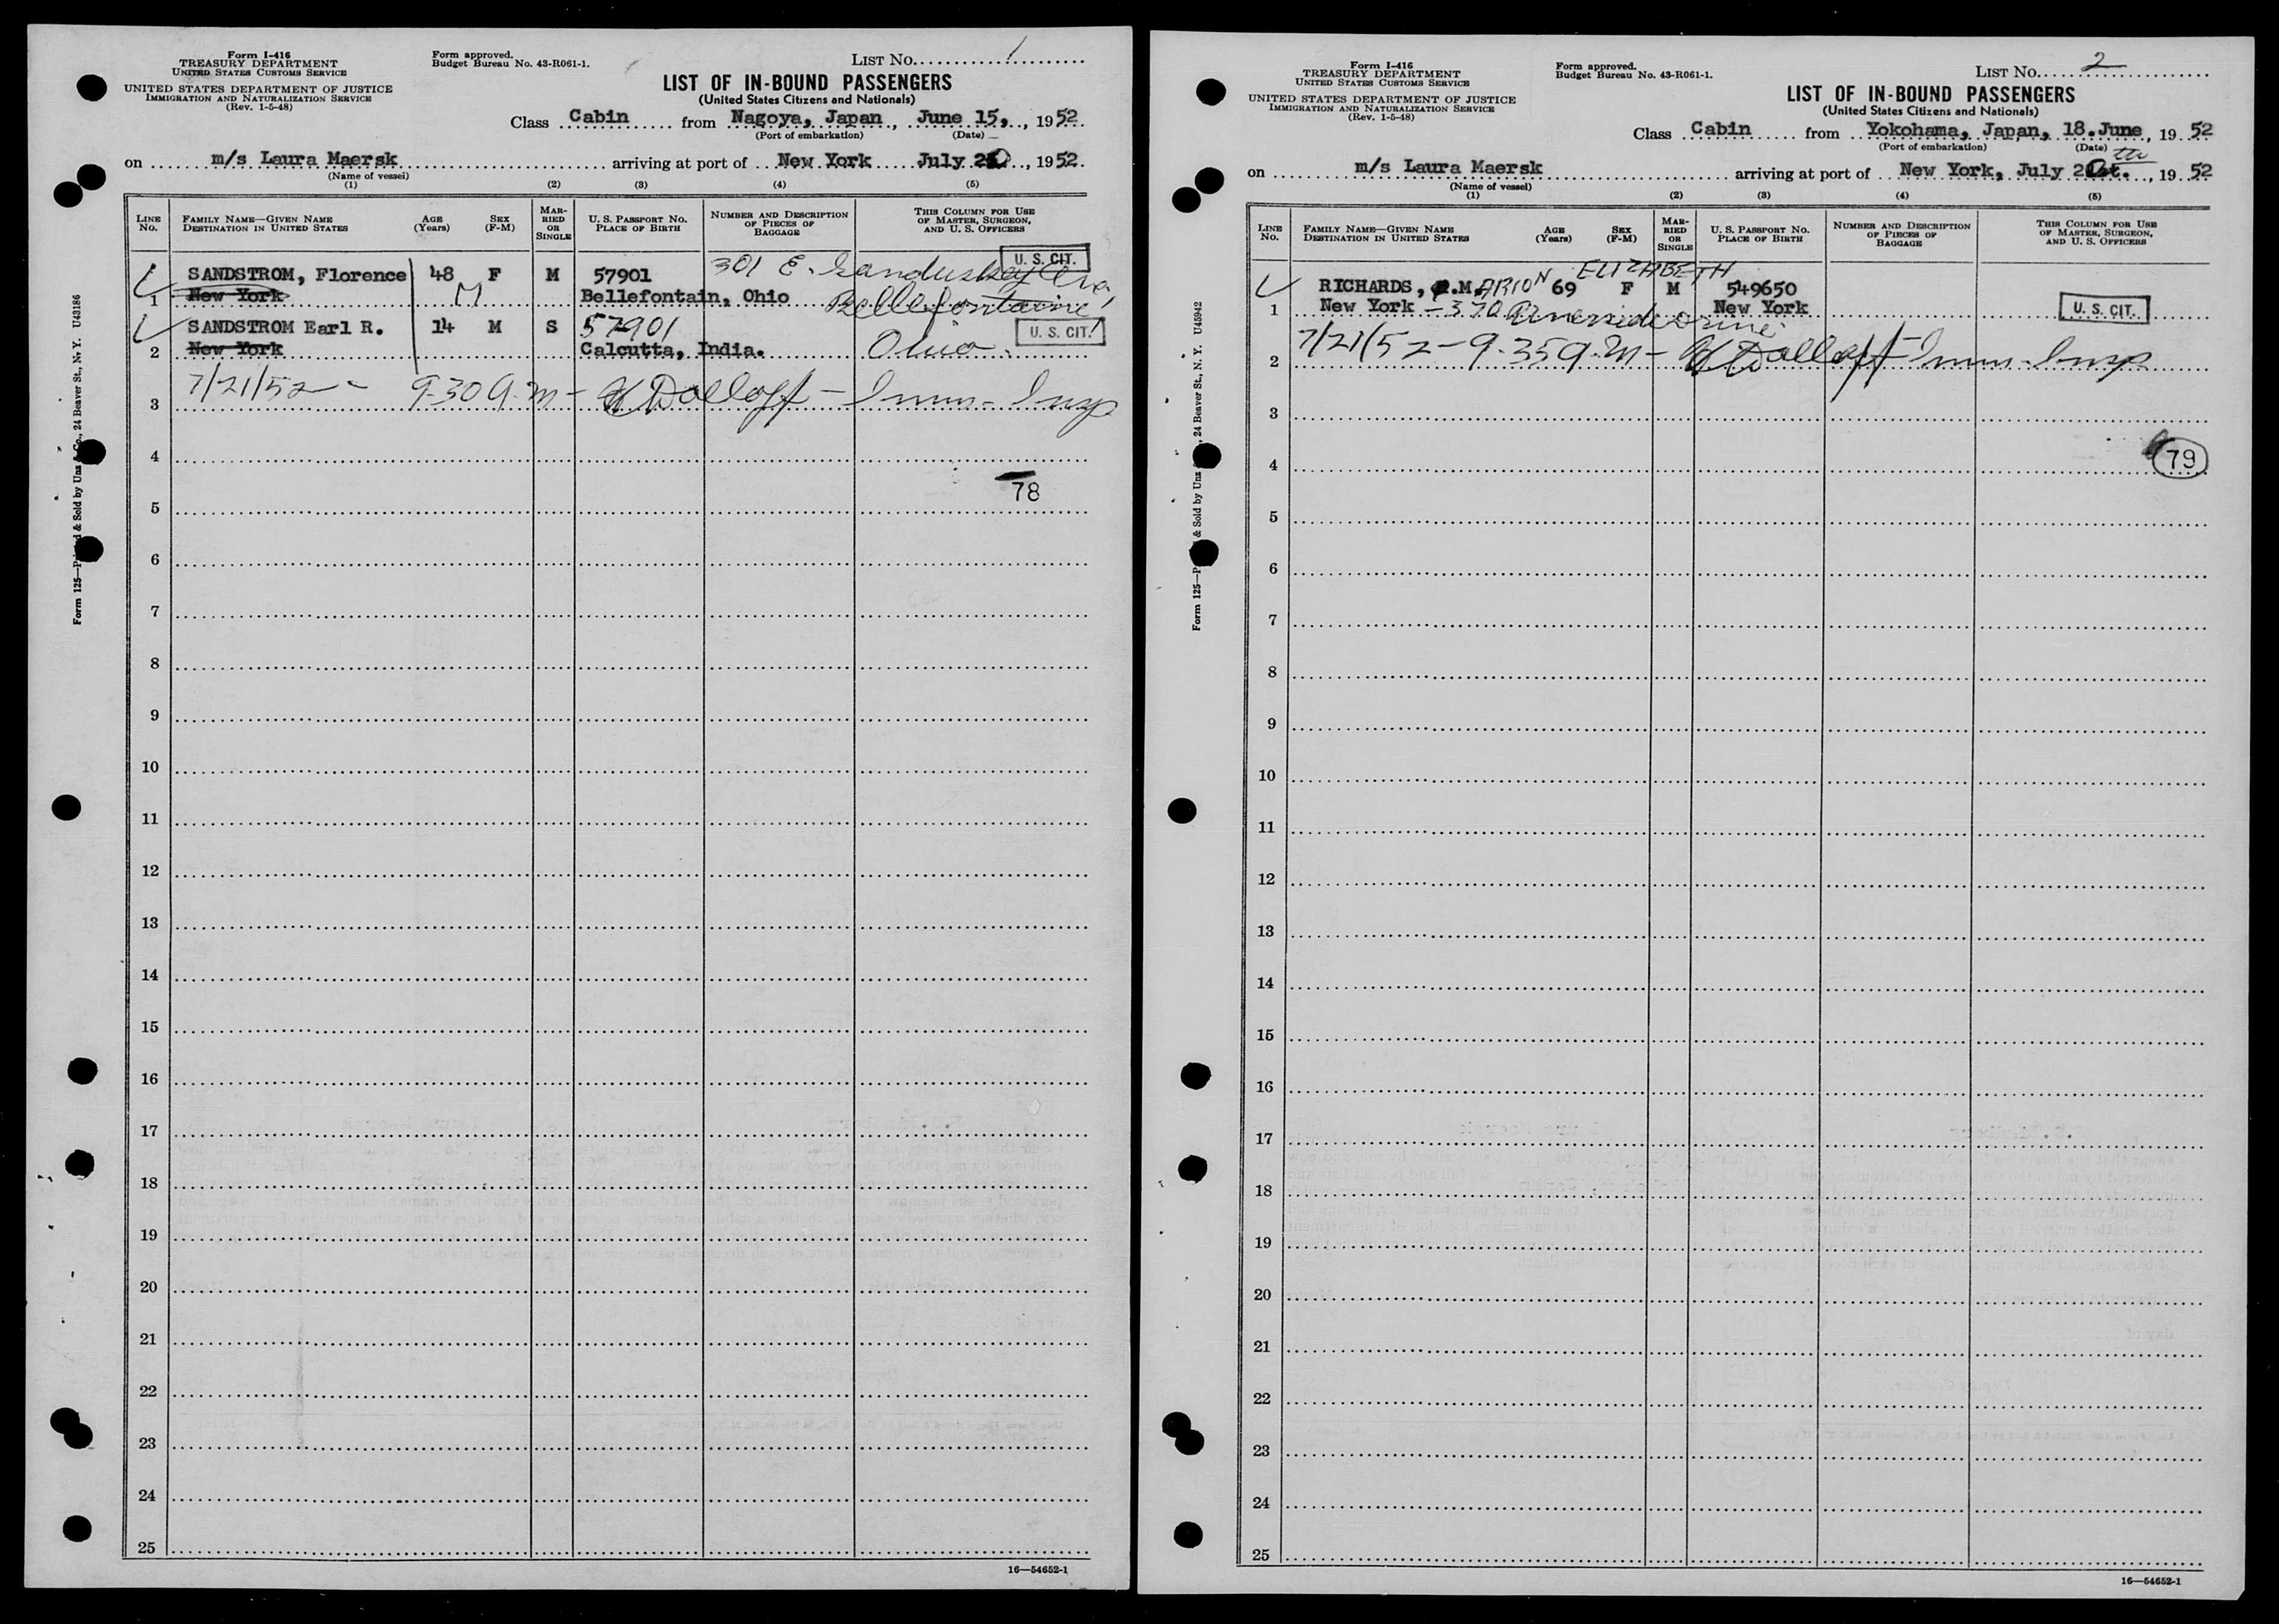 Form I-416
TREASURY DEPARTMENT
UNITED STATES CUSTOMS SERVICE
UNITED STATES DEPARTMENT OF JUSTICE
IMMIGRATION AND NATURALIZATION SERVICE
(Rev. 1-5-48)
Form approved.
Budget Bureau No. 43-R061-1.
LIST NO. 1
LIST OF IN-BOUND PASSENGERS
(United States Citizens and Nationals)
Class Cabin from Nagoya, Japan, June 15, 1952.
(Port of embarkation) (Date)
on m/s Laura Maersk arriving at port of New York July 20, 1952.
(Name of vessel)
(1) (2) (3) (4) (5)
LINE No. FAMILY NAME—GIVEN NAME DESTINATION IN UNITED STATES AGE (Years) SEX (F-M) MARRIED OR SINGLE U. S. PASSPORT No. PLACE OF BIRTH NUMBER AND DESCRIPTION OF PIECES OF BAGGAGE THIS COLUMN FOR USE OF MASTER, SURGEON, AND U. S. OFFICERS
SANDSTROM, Florence 48 F M 57901 301 E. Sandusky Ave, U. S. CIT.
1 New York M Bellefontain, Ohio Bellefontaine
SANDSTROM Earl R. 14 M S 57901 U. S. CIT.
2 New York Calcutta, India. Ohio.
3 7/21/52 - 9-30 a.m - Dolloff - Imm- Insp
4
78
5
6
7
8
9
10
11
12
13
14
15
16
17
18
19
20
21
22
23
24
25
16—54652-1
Form 125—Printed & Sold by Unz & Co., 24 Beaver St., N. Y. U43186
Form I-416
TREASURY DEPARTMENT
UNITED STATES CUSTOMS SERVICE
UNITED STATES DEPARTMENT OF JUSTICE
IMMIGRATION AND NATURALIZATION SERVICE
(Rev. 1-5-48)
Form approved.
Budget Bureau No. 43-R061-1.
LIST NO. 2
LIST OF IN-BOUND PASSENGERS
(United States Citizens and Nationals)
Class Cabin from Yokohama, Japan, 18.June, 19 52
(Port of embarkation) (Date)
on m/s Laura Maersk arriving at port of New York, July 20th, 19 52
(Name of vessel)
(1) (2) (3) (4) (5)
LINE No. FAMILY NAME—GIVEN NAME DESTINATION IN UNITED STATES AGE (Years) SEX (F-M) MARRIED OR SINGLE U. S. PASSPORT No. PLACE OF BIRTH NUMBER AND DESCRIPTION OF PIECES OF BAGGAGE THIS COLUMN FOR USE OF MASTER, SURGEON, AND U. S. OFFICERS
RICHARDS, MARION ELIZABETH 69 F M 549650
1 New York - 370 Riverside Drive New York U. S. CIT.
2 7/21/52 - 9.35 a.m - Dolloff - Imm- Insp
3
4 79
5
6
7
8
9
10
11
12
13
14
15
16
17
18
19
20
21
22
23
24
25
16—54652-1
Form 125—P & Sold by Unz , 24 Beaver St., N. Y. U45942